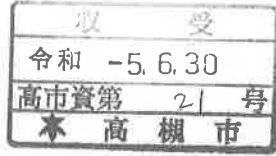 収受
令和 -5.6.30
高市資第 21 号
高槻市